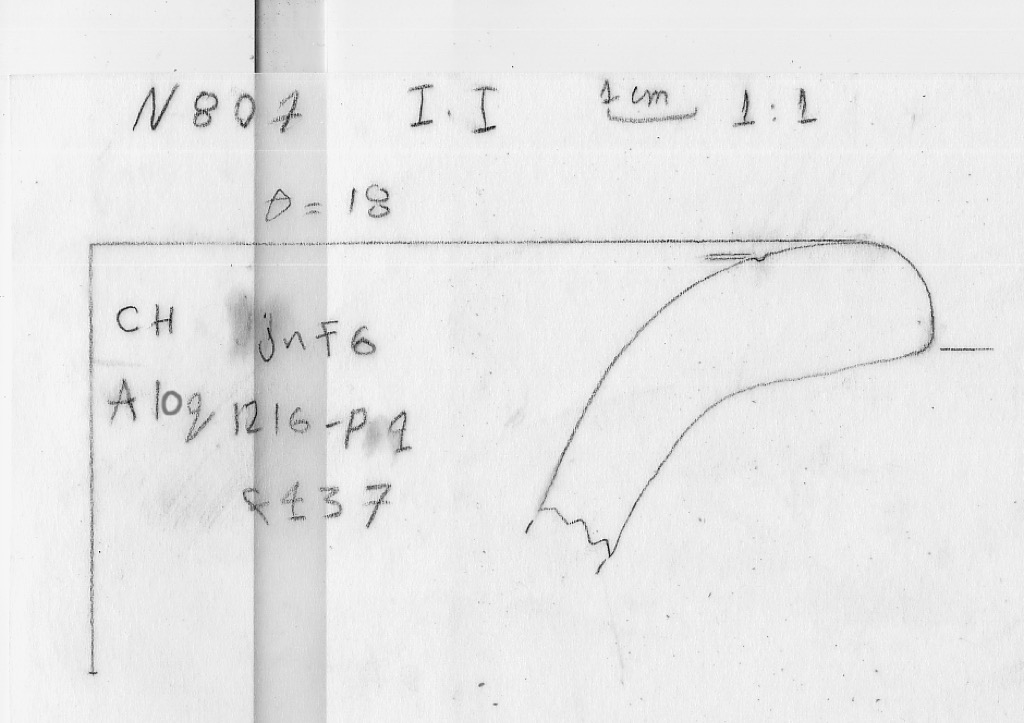 N 807 I.I 1 cm 1:1
D = 18
CH inf 6
A log 1216-P.9
&137